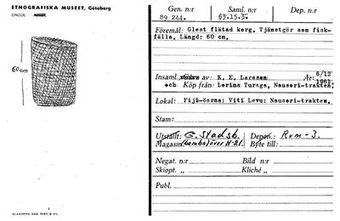 ETNOGRAFISKA MUSEET, Göteborg
60 cm
Gen. n:r
Saml. n:r
Dep. n:r
89 244.
63.15.3.
Föremål: Glest flätad korg, Tjänstgör som fisk-
fälla, Längd: 60 cm,
Insaml. av: K. E. Larsson
År: 6/12
1961.
och Köp från: Lerina Turaga, Nausori-trakten,
Lokal: Fiji-öarna: Viti Levu: Nausori-trakten.
Stam:
Utställt:
Depon.: Rum-3.
Magasin
Byte till:
Negat. n:r
Bild n:r
Skiopt. n:r
Kliché
Publ.